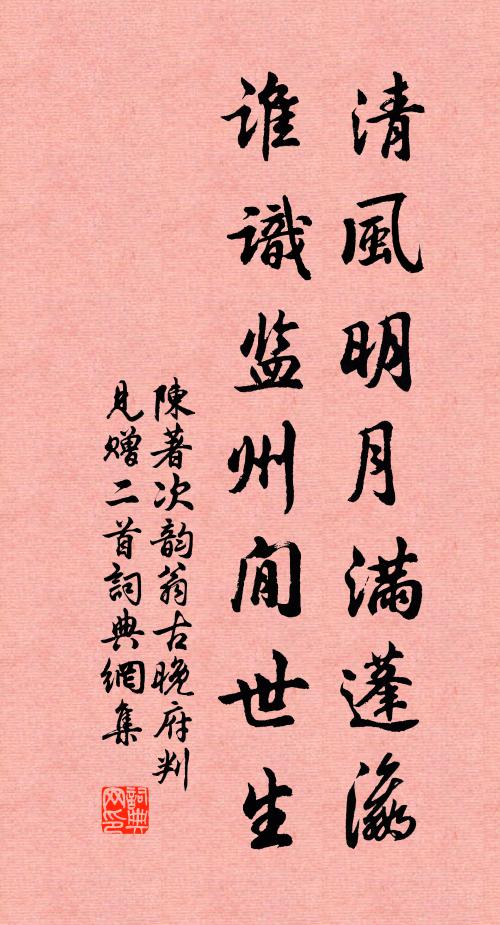 清風明月滿蓬瀛
谁識监州间世生
陳著次韵翁古晚府判
見赠二首詞典網集
詞典网印